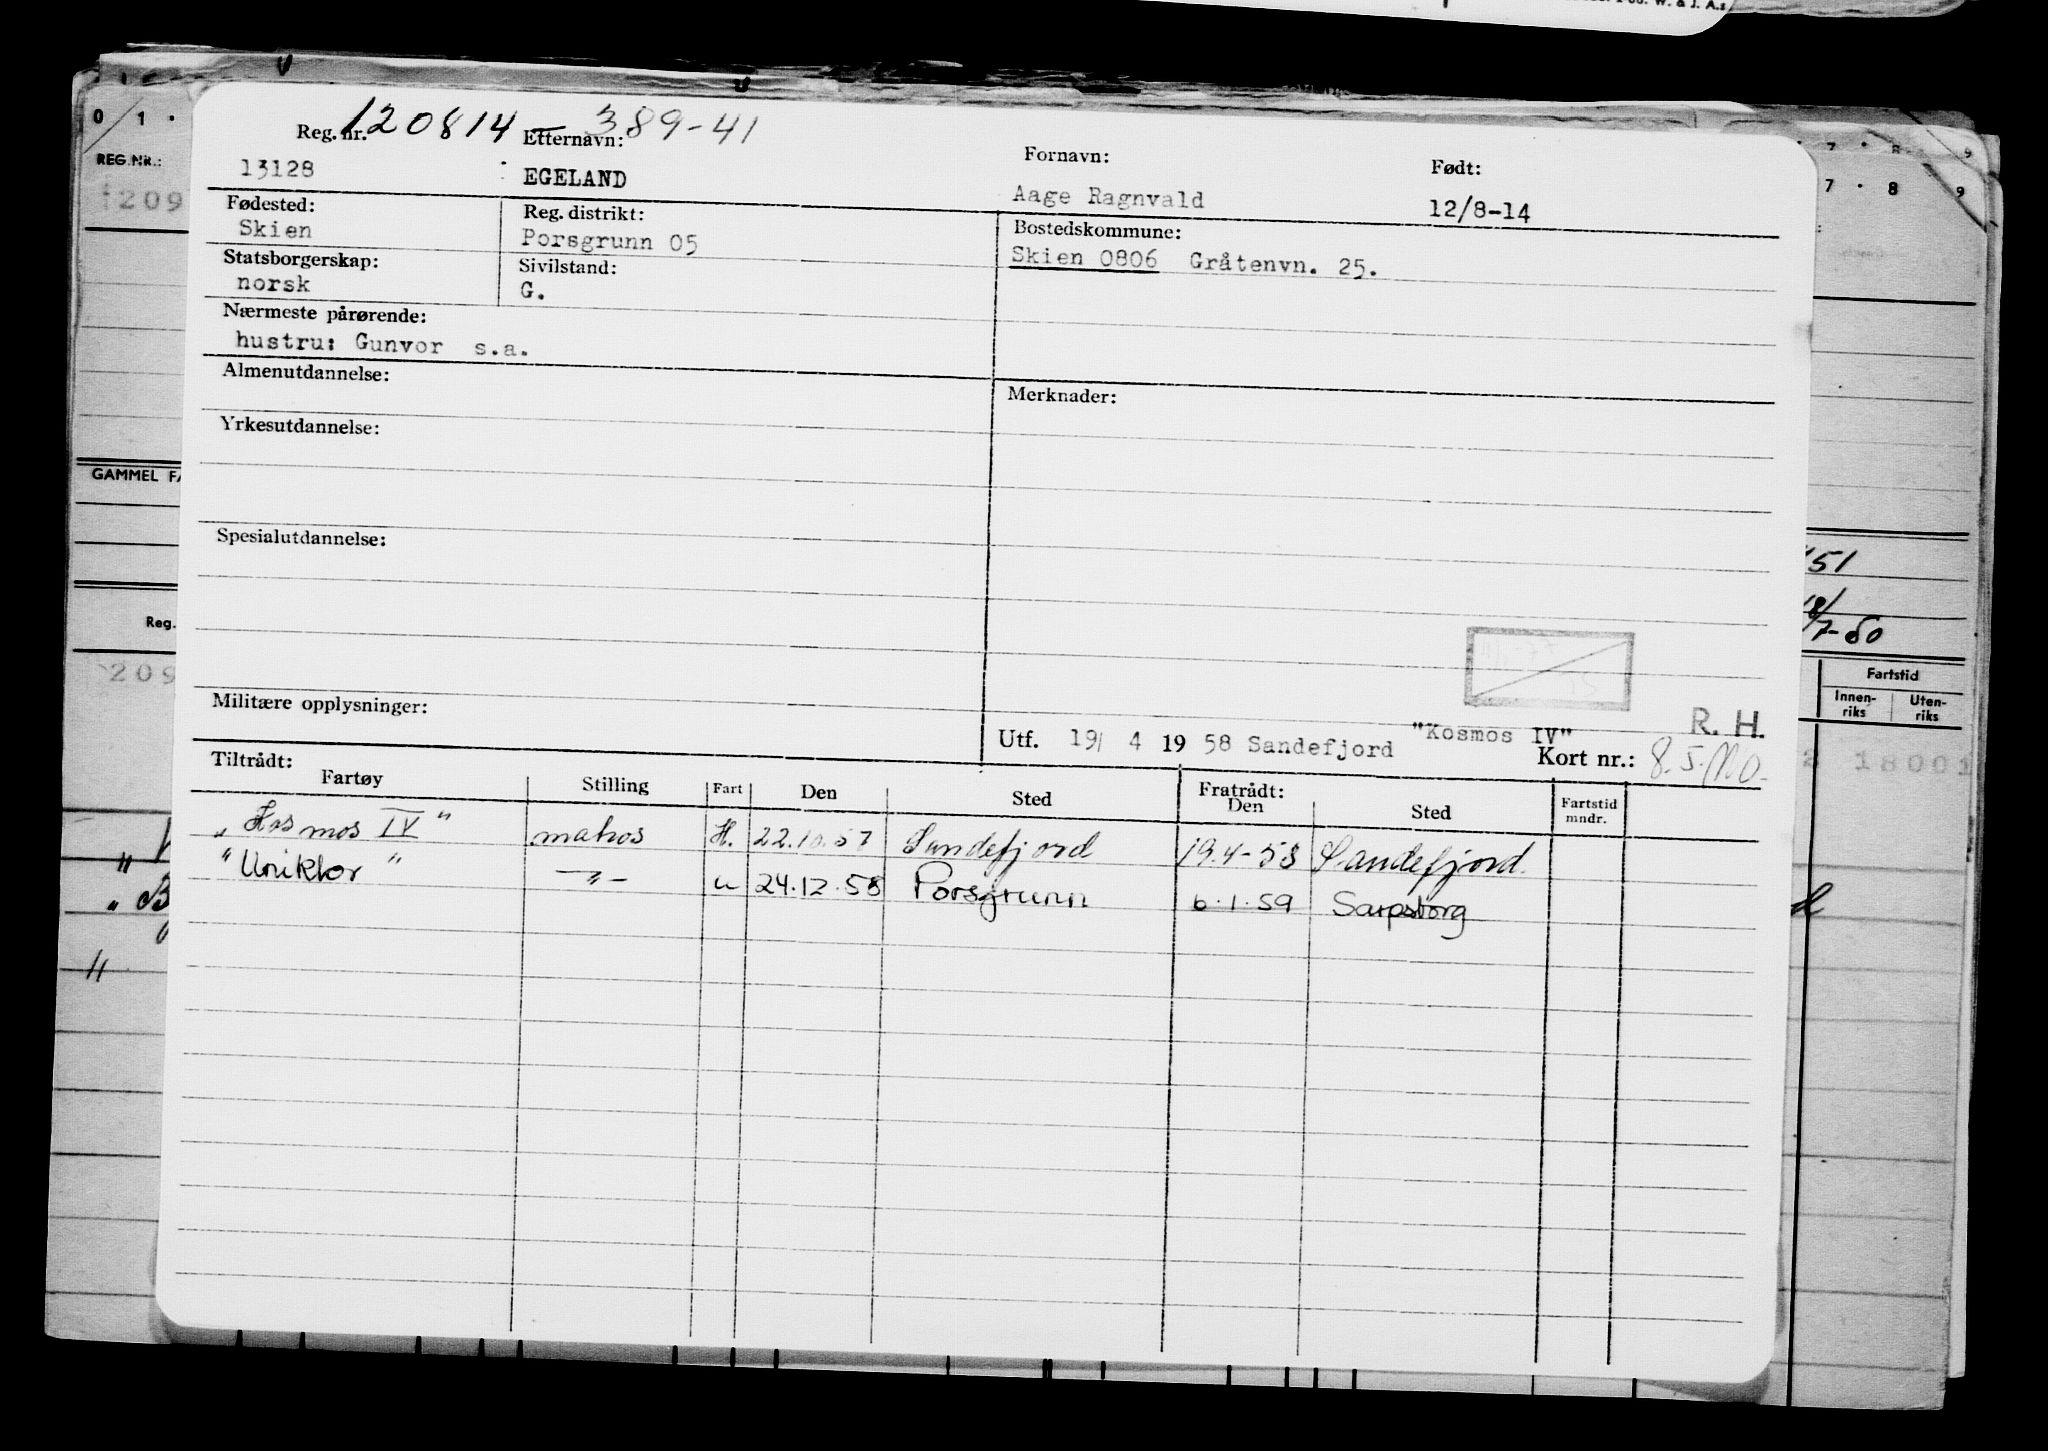 120814 - 389-41
Reg. nr. Etternavn: Fornavn: Født:
13128 EGELAND Aage Ragnvald 12/8-14
Fødested: Reg. distrikt: Bostedskommune:
Skien Porsgrunn 05 Skien 0806 Gråtenvn. 25.
Statsborgerskap: Sivilstand:
norsk G.
Nærmeste pårørende:
hustru: Gunvor s.a.
Almenutdannelse: Merknader:
Yrkesutdannelse:
Spesialutdannelse:
Militære opplysninger:
R. H.
Utf. 19/ 4 19 58 Sandefjord "Kosmos IV" Kort nr.:
Tiltrådt: Fratrådt:
Fartøy Stilling Fart Den Sted Den Sted Fartstid mndr.
"Kosmos IV" matros H. 22.10.57 Sandefjord 19.4-58 Sandefjord.
"Uniklor" -"- u 24.12.58 Porsgrunn 6.1.59 Sarpsborg
0 1 .
REG.NR.:
1209
GAMMEL FA
Reg.
209
7 . 8 9
7 . 8 9
151
18/7-50
Fartstid
Innen-riks Uten-riks
18001